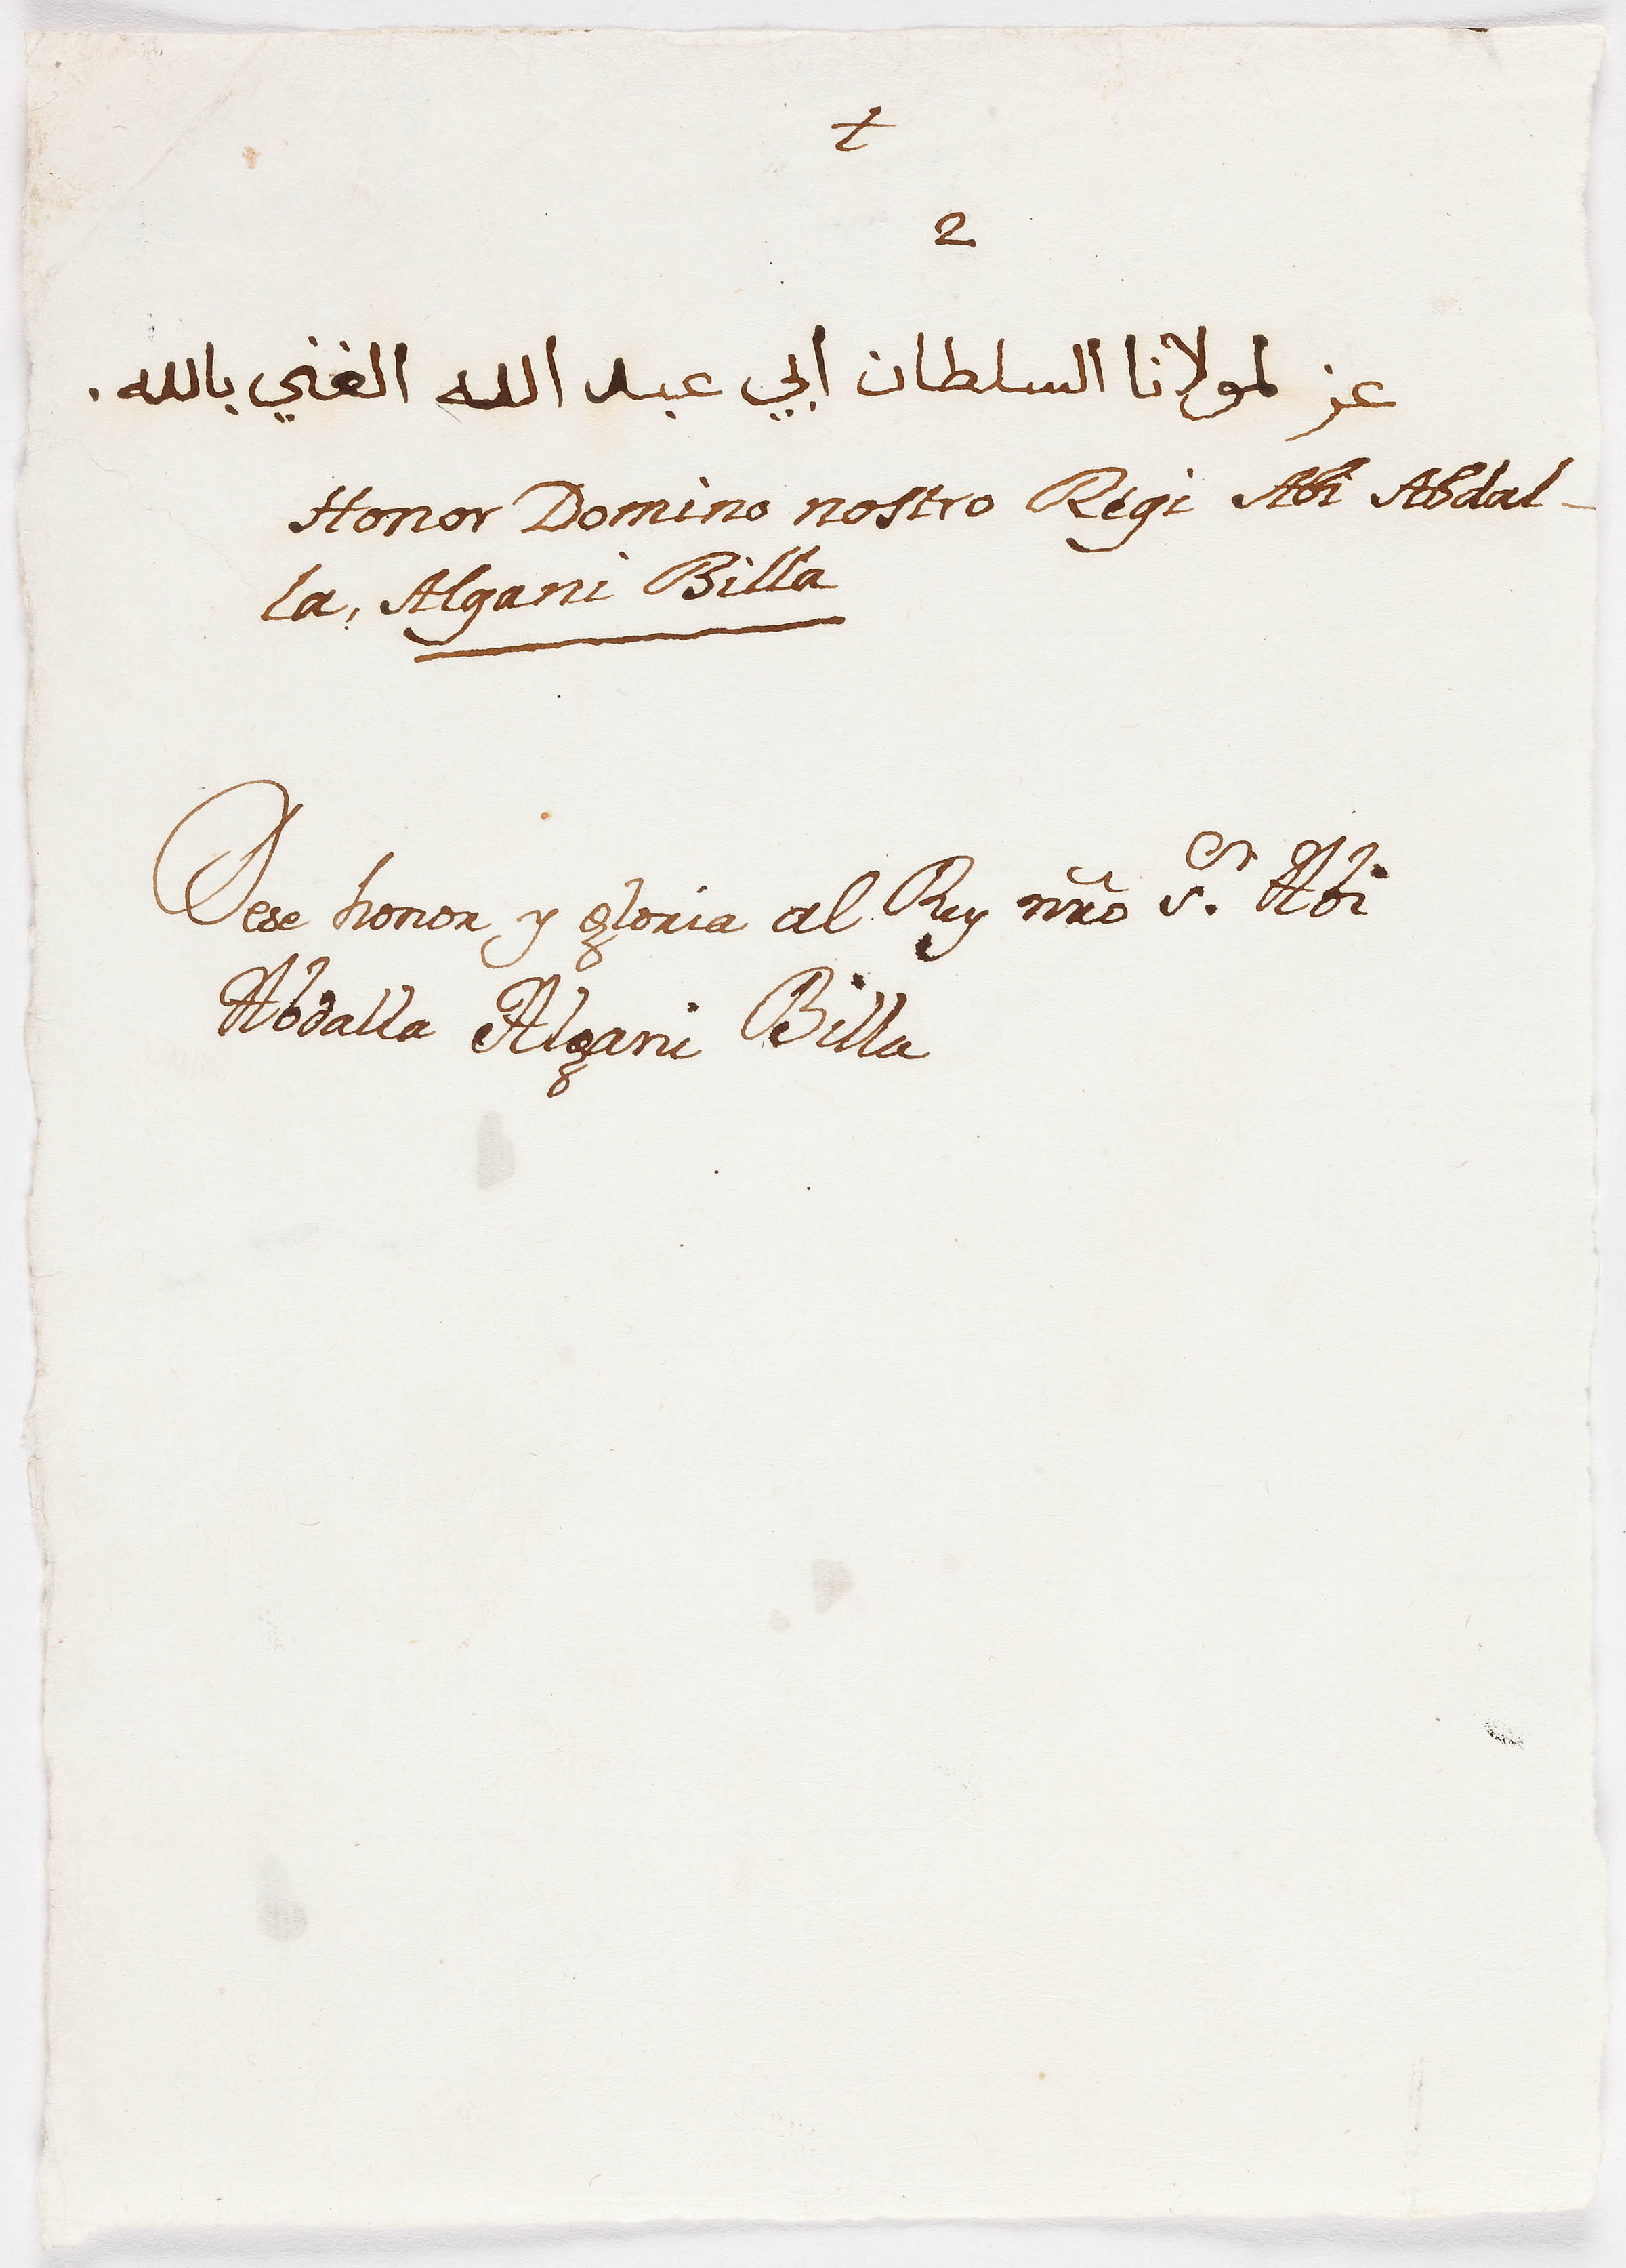 t
2
عز لمولانا السلطان ابي عبد الله الغني بالله.
Honor Domino nostro Regi Abi Abdal-
la, Algani Billa
Dese honor y gloria al Rey nŕo S.or Abi
Abdalla Algani Billa